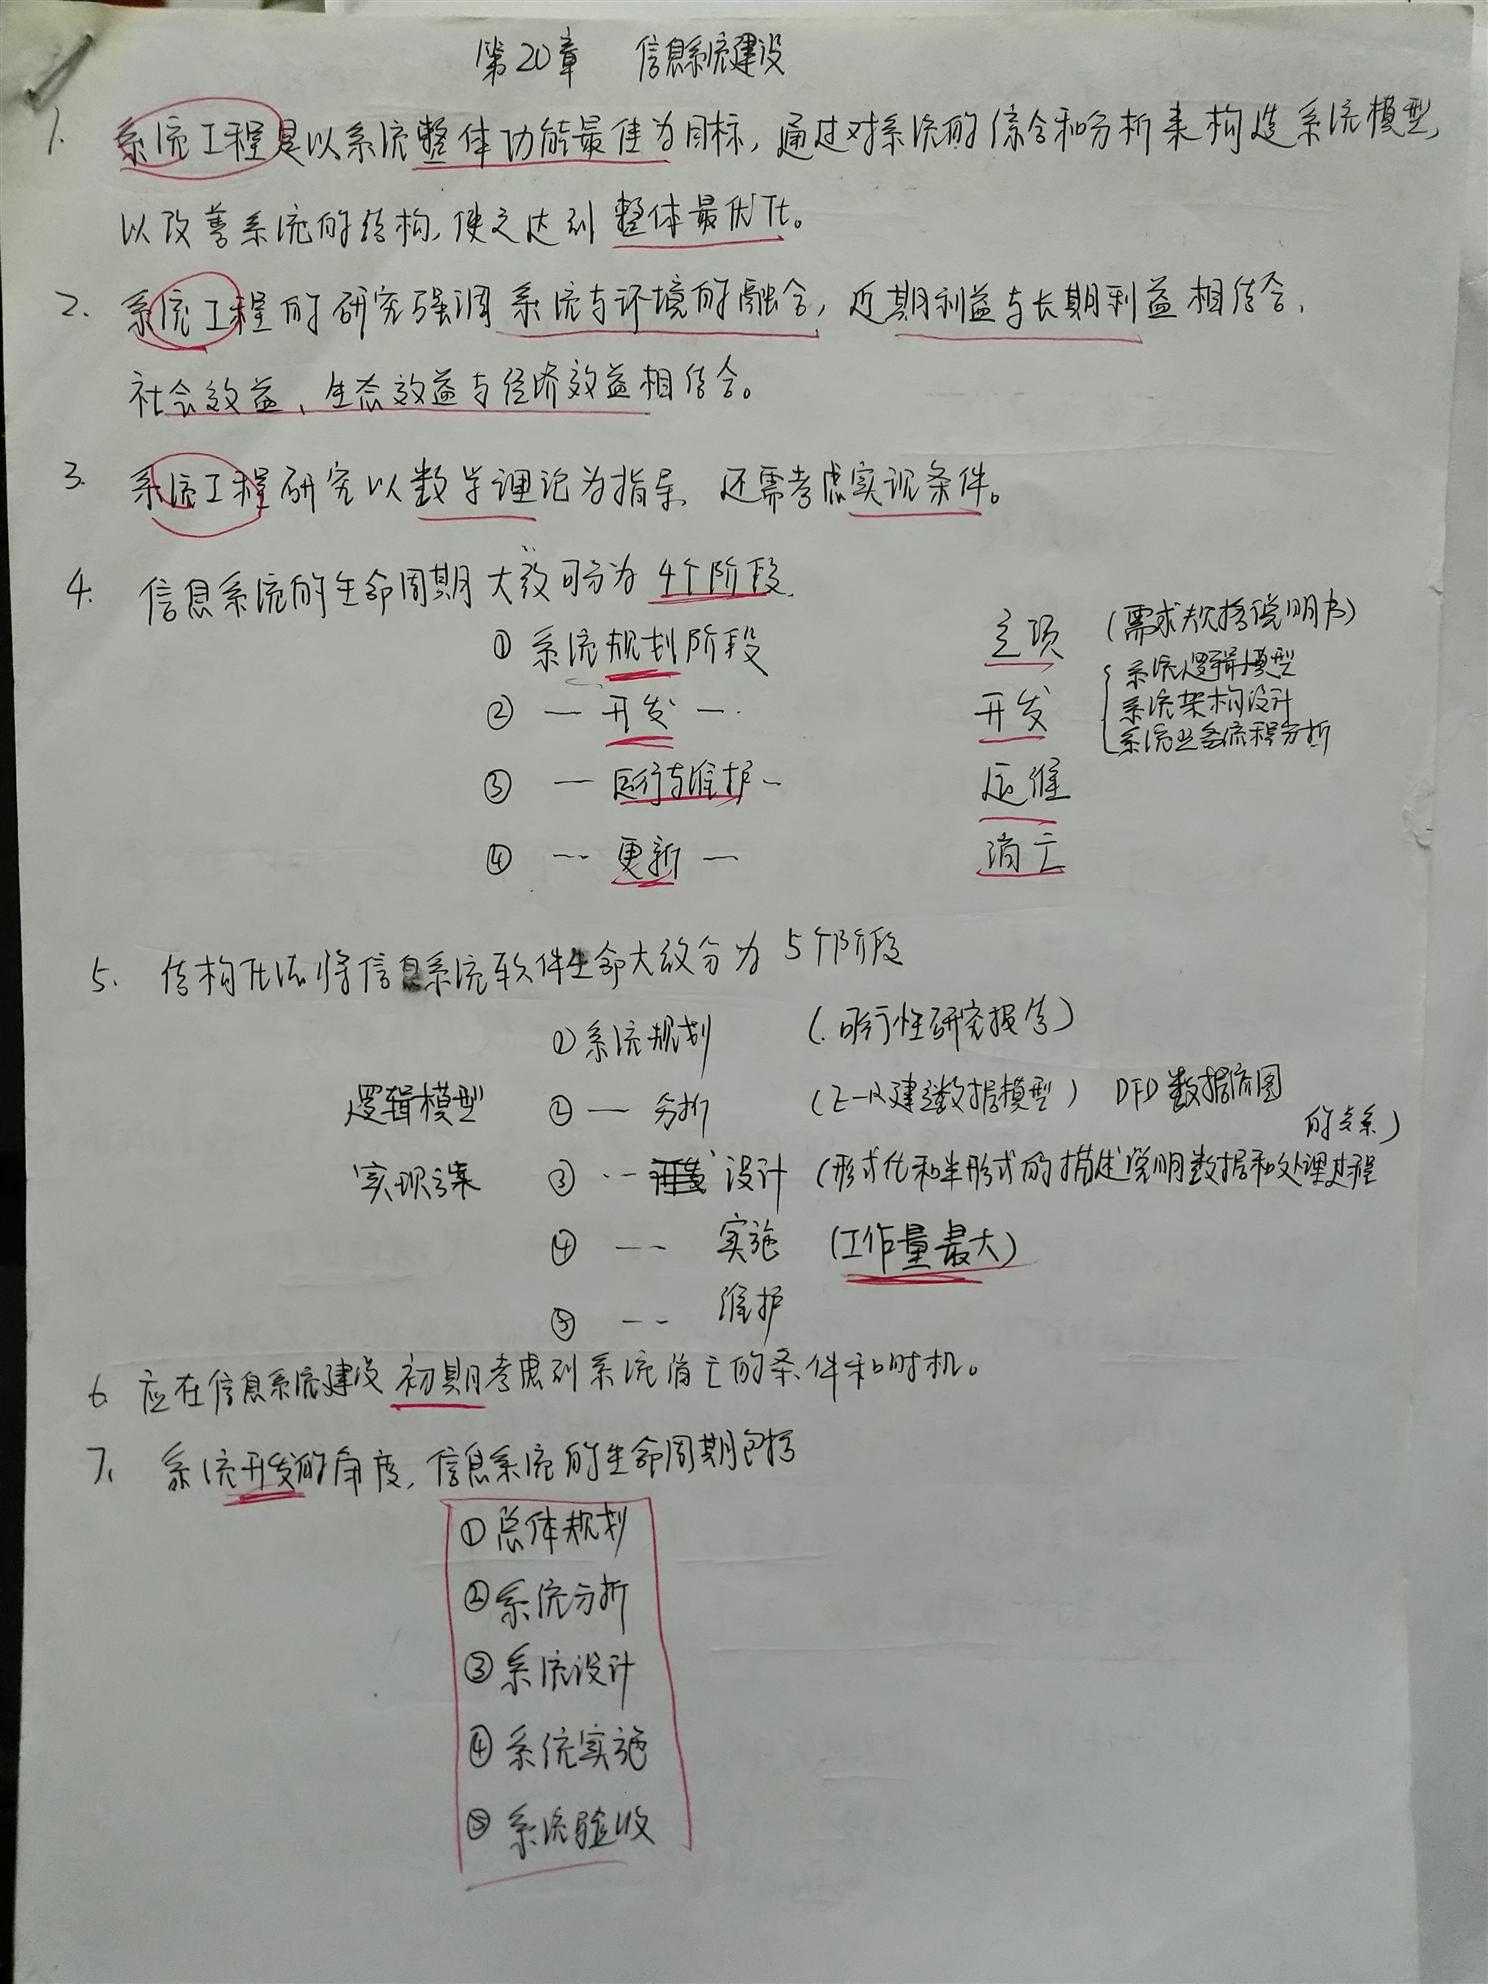 第20章 信息系统建设
1. 系统工程是以系统整体功能最佳为目标，通过对系统的综合和分析来构造系统模型，
以改善系统的结构，使之达到整体最优化。
2. 系统工程的研究强调系统与环境的融合，近期利益与长期利益相结合，
社会效益、生态效益与经济效益相结合。
3. 系统工程研究以数学理论为指导，还需考虑实现条件。
4. 信息系统的生命周期大致可分为4个阶段.
①系统规划阶段 立项 (需求规格说明书)
系统逻辑模型
② — 开发 — 开发 系统架构设计
系统业务流程分析
③ — 运行与维护 — 运维
④ — 更新 — 消亡
5. 结构化法将信息系统软件生命大致分为5个阶段
①系统规划 (可行性研究报告)
逻辑模型 ② — 分析 (E-R建立数据模型) DFD数据流图
的关系)
实现方案 ③ -- 设计 (形式化和半形式的描述说明数据和处理过程
④ -- 实施 (工作量最大)
⑤ -- 维护
6. 应在信息系统建设初期考虑到系统消亡的条件和时机。
7. 系统开发的角度，信息系统的生命周期包括
①总体规划
②系统分析
③系统设计
④系统实施
⑤系统验收